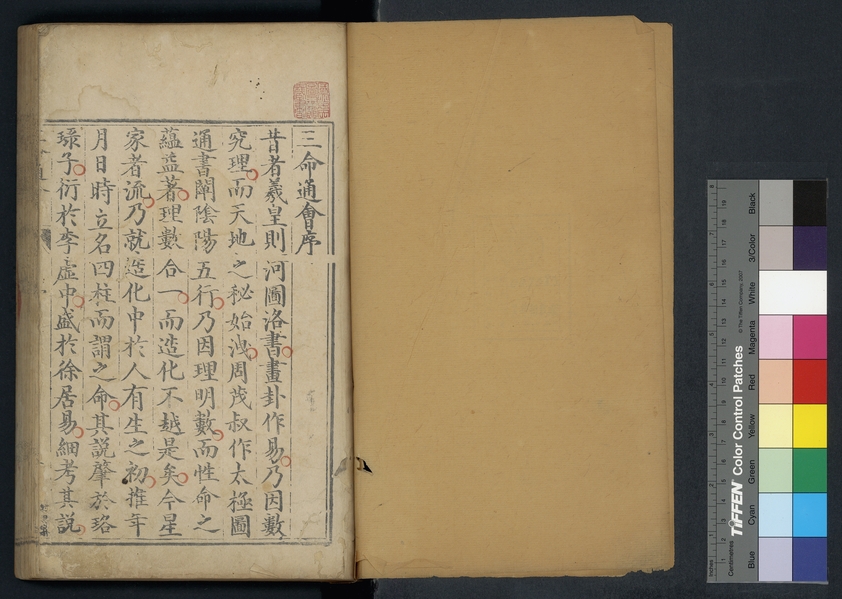 三命通會序
昔者羲皇則河圖洛書畫卦作易乃因數
究理而天地之秘始洩周茂叔作太極圖
通書闡陰陽五行乃因理明數而性命之
蘊益著理數合一而造化不越是矣今星
家者流乃就造化中於人有生之初推年
月日時立名四柱而謂之命其說肇於珞
琭子衍於李虛中盛於徐居易細考其説
Black
3/Color
White
Magenta
Red
Yellow
Green
Cyan
Blue
TIFFEN Color Control Patches
© The Tiffen Company, 2007
Centimetres
Inches